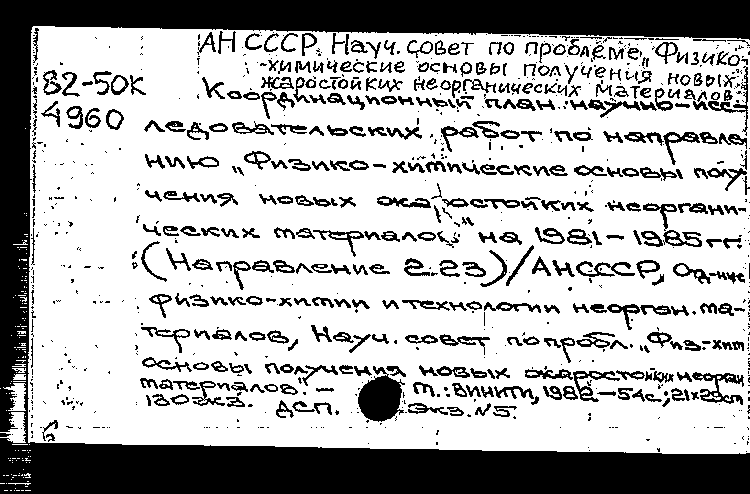 АН СССР. Науч. совет по проблеме „Физико-
-химические основы получения новых
жаростойких неорганических материалов
82-50К
4960
Координационный план научно-исс-
ледовательских работ по направле
нию „Физико-химические основы полу
чения новых жаростойких неоргани-
ческих материалов" на 1981-1985 гг.
(Направление 2.23)/АН СССР, Отд-ние
физико-химии и технологии неорган. ма-
териалов, Науч. совет по пробл. „Физ.-хим
основы получения новых жаростойких неорган
материалов". - М.: ВИНИТИ, 1982.-54с.; 21х29см
130 экз. ДСП. Экз. №5.